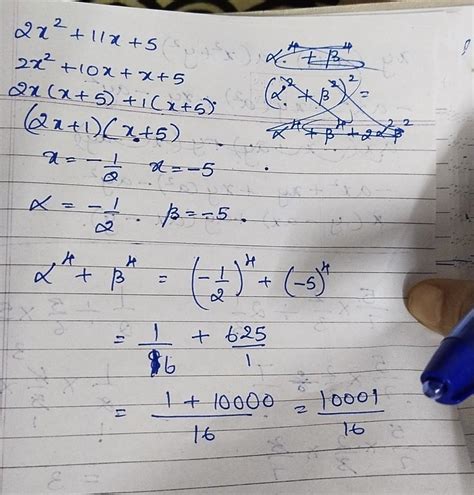 2x² + 11x + 5
2x² + 10x + x + 5
2x(x+5) + 1(x+5)
(2x+1)(x+5)
x = -1/2   x = -5
α = -1/2   β = -5
α⁴ + β⁴
(α² + β²)² =
α⁴ + β⁴ + 2α²β²
α⁴ + β⁴ = (-1/2)⁴ + (-5)⁴
= 1/16 + 625/1
= (1 + 10000)/16 = 10001/16